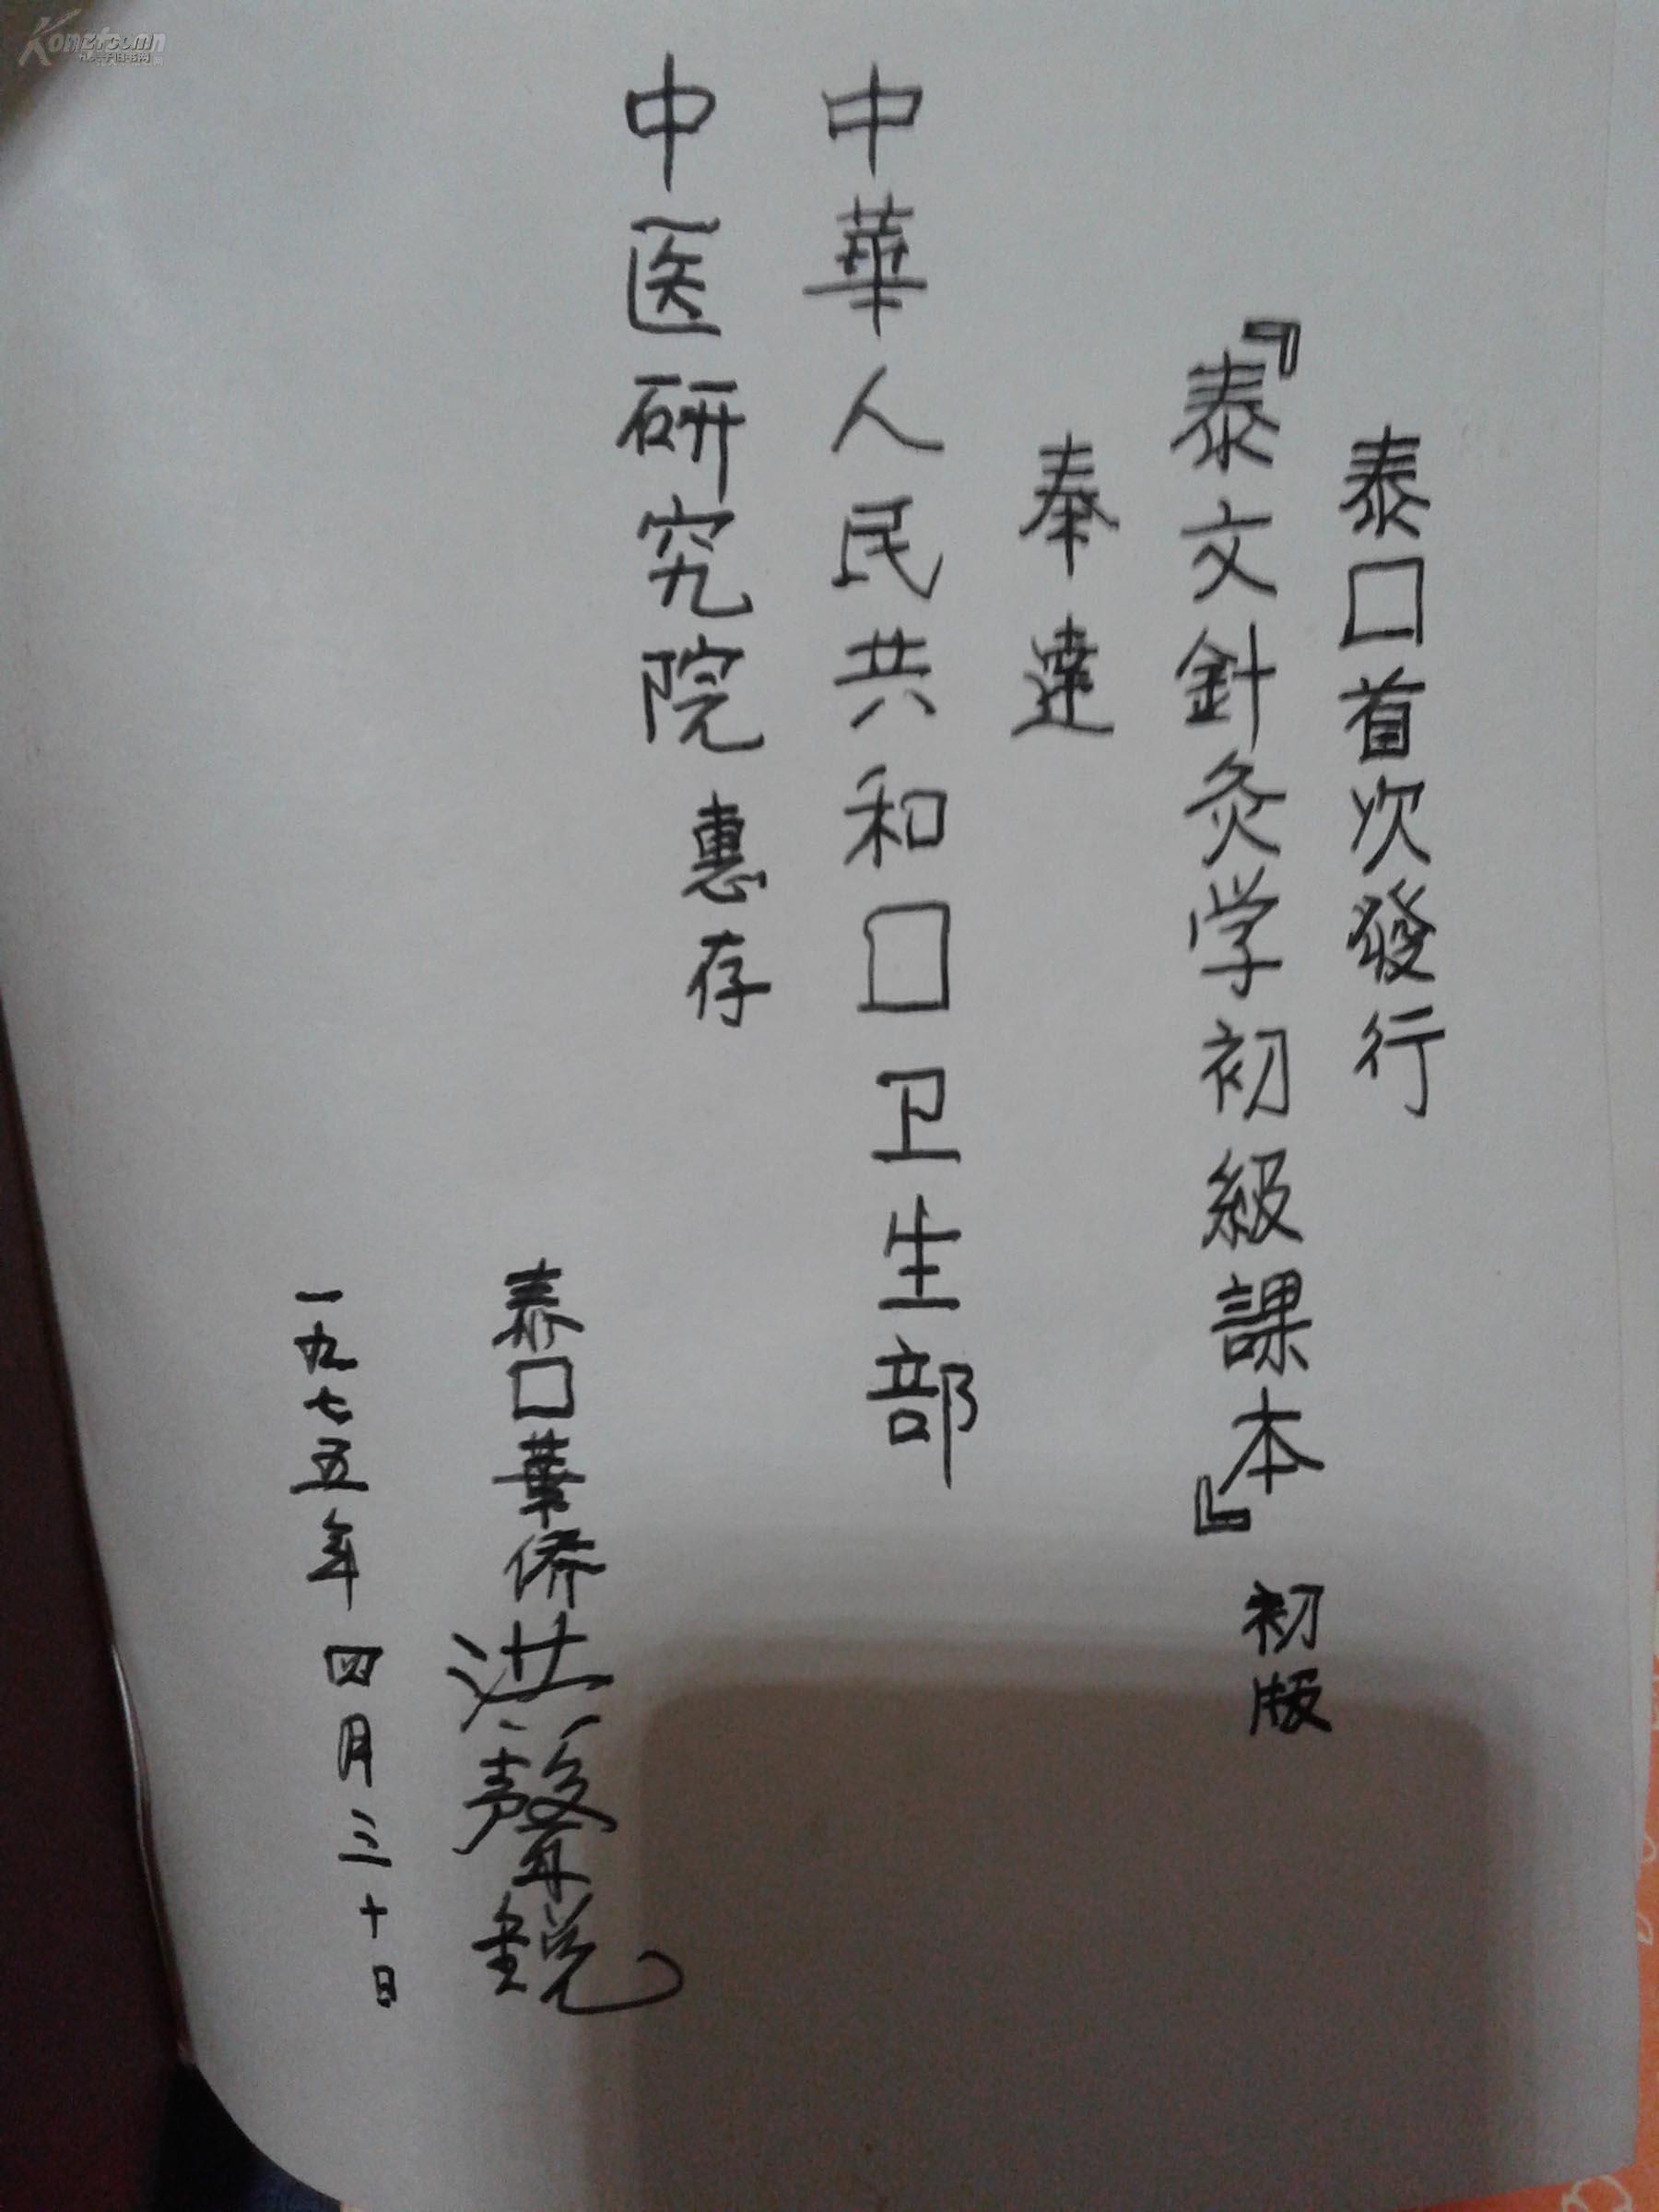 泰囗首次發行
『泰文針灸学初級課本』初版
奉達
中華人民共和囗卫生部
中医研究院惠存
泰囗華侨洪聲銳
一九七五年四月三十日